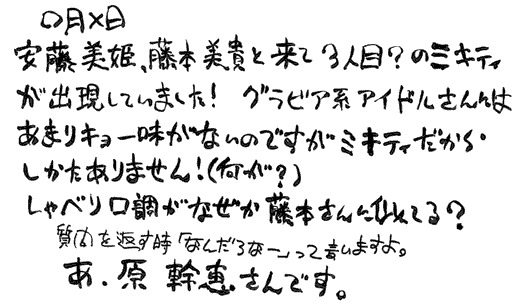 ○月×日
安藤美姫、藤本美貴と来て3人目?のミキティ
が出現していました! グラビア系アイドルさんには
あまりキョー味がないのですがミキティだから
しかたありません!(何が?)
しゃべり口調がなぜか藤本さんに似てる?
質問を返す時「なんだろなー」って言いますよ。
あ、原 幹恵さんです。